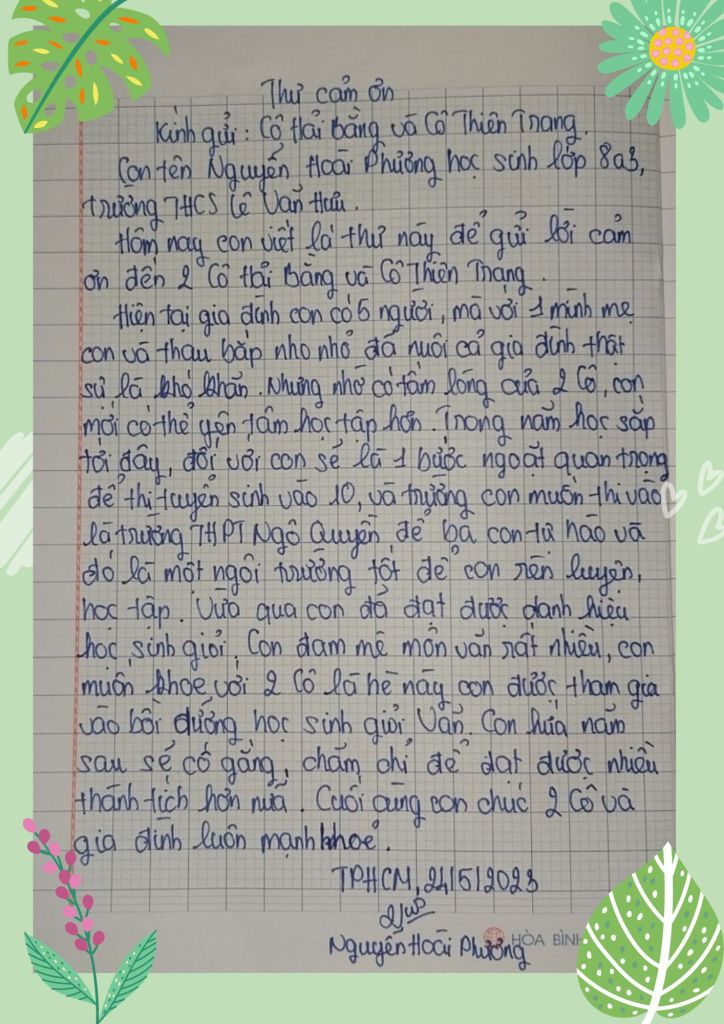 Thư cảm ơn
Kính gửi: Cô Hải Bằng và Cô Thiên Trang.
Con tên Nguyễn Hoài Phương học sinh lớp 8a3,
trường THCS Lê Văn Hưu.
Hôm nay con viết lá thư này để gửi lời cảm
ơn đến 2 Cô Hải Bằng và Cô Thiên Trang.
Hiện tại gia đình con có 5 người, mà với 1 mình mẹ
con và thau bắp nho nhỏ đã nuôi cả gia đình thật
sự là khó khăn. Nhưng nhờ có tấm lòng của 2 Cô, con
mới có thể yên tâm học tập hơn. Trong năm học sắp
tới đây, đối với con sẽ là 1 bước ngoặt quan trọng
để thi tuyển sinh vào 10, và trường con muốn thi vào
là trường THPT Ngô Quyền để bà con tự hào và
đó là một ngôi trường tốt để con rèn luyện,
học tập. Vừa qua con đã đạt được danh hiệu
học sinh giỏi. Con đam mê môn văn rất nhiều, con
muốn khoe với 2 Cô là hè này con được tham gia
vào bồi dưỡng học sinh giỏi Văn. Con hứa năm
sau sẽ cố gắng, chăm chỉ để đạt được nhiều
thành tích hơn nữa. Cuối cùng con chúc 2 Cô và
gia đình luôn mạnh khoẻ.
TPHCM, 24/5/2023
Nguyễn Hoài Phương
HÒA BÌNH